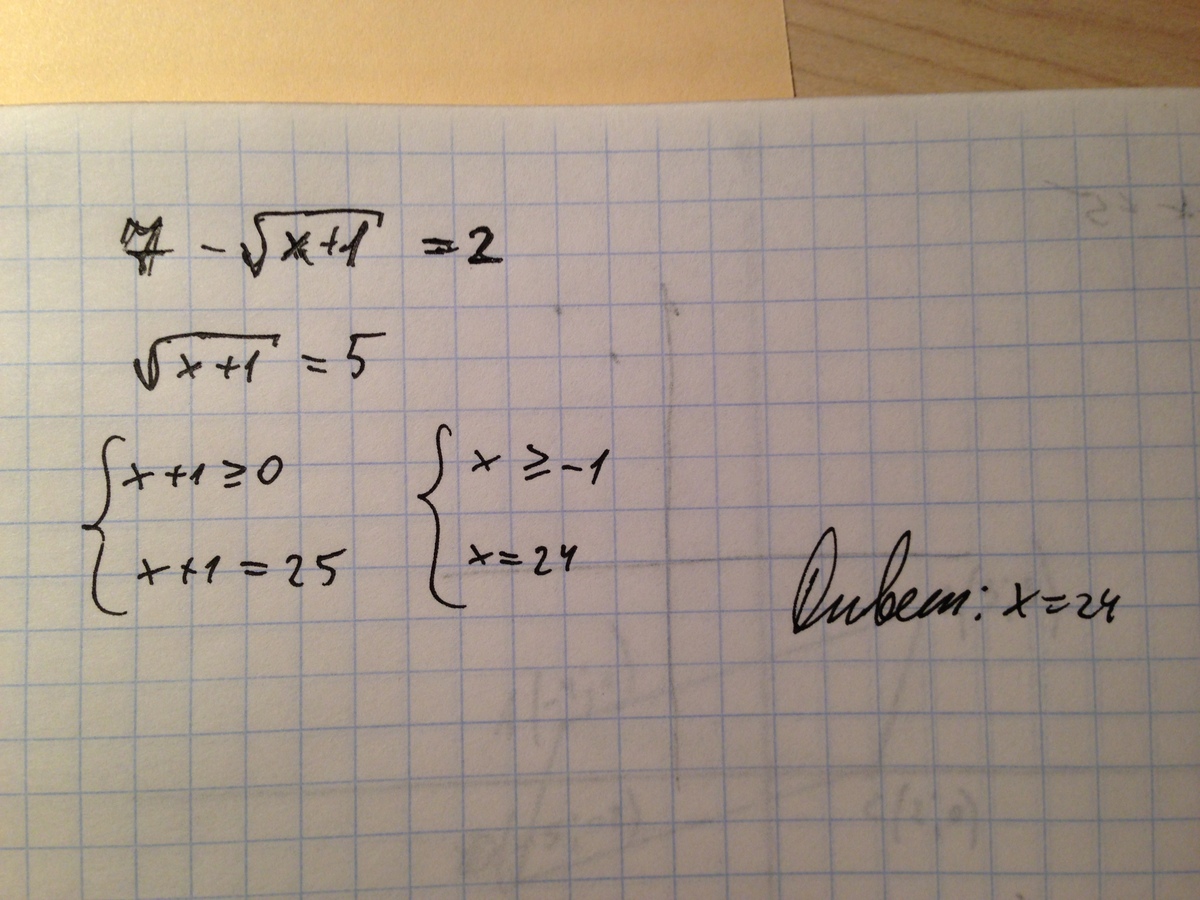 7 - √(x+1) = 2
√(x+1) = 5
{ x+1 ≥ 0 { x ≥ -1
x+1 = 25 x = 24
Ответ: x = 24